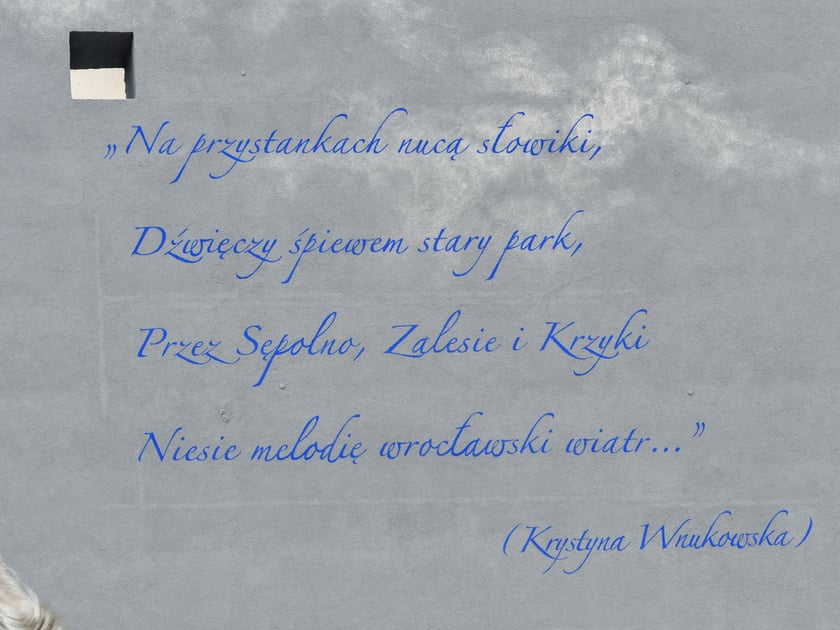 „Na przystankach nucą słowiki,
Dźwięczy śpiewem stary park,
Przez Sępolno, Zalesie i Krzyki
Niesie melodię wrocławski wiatr...”
(Krystyna Wnukowska)